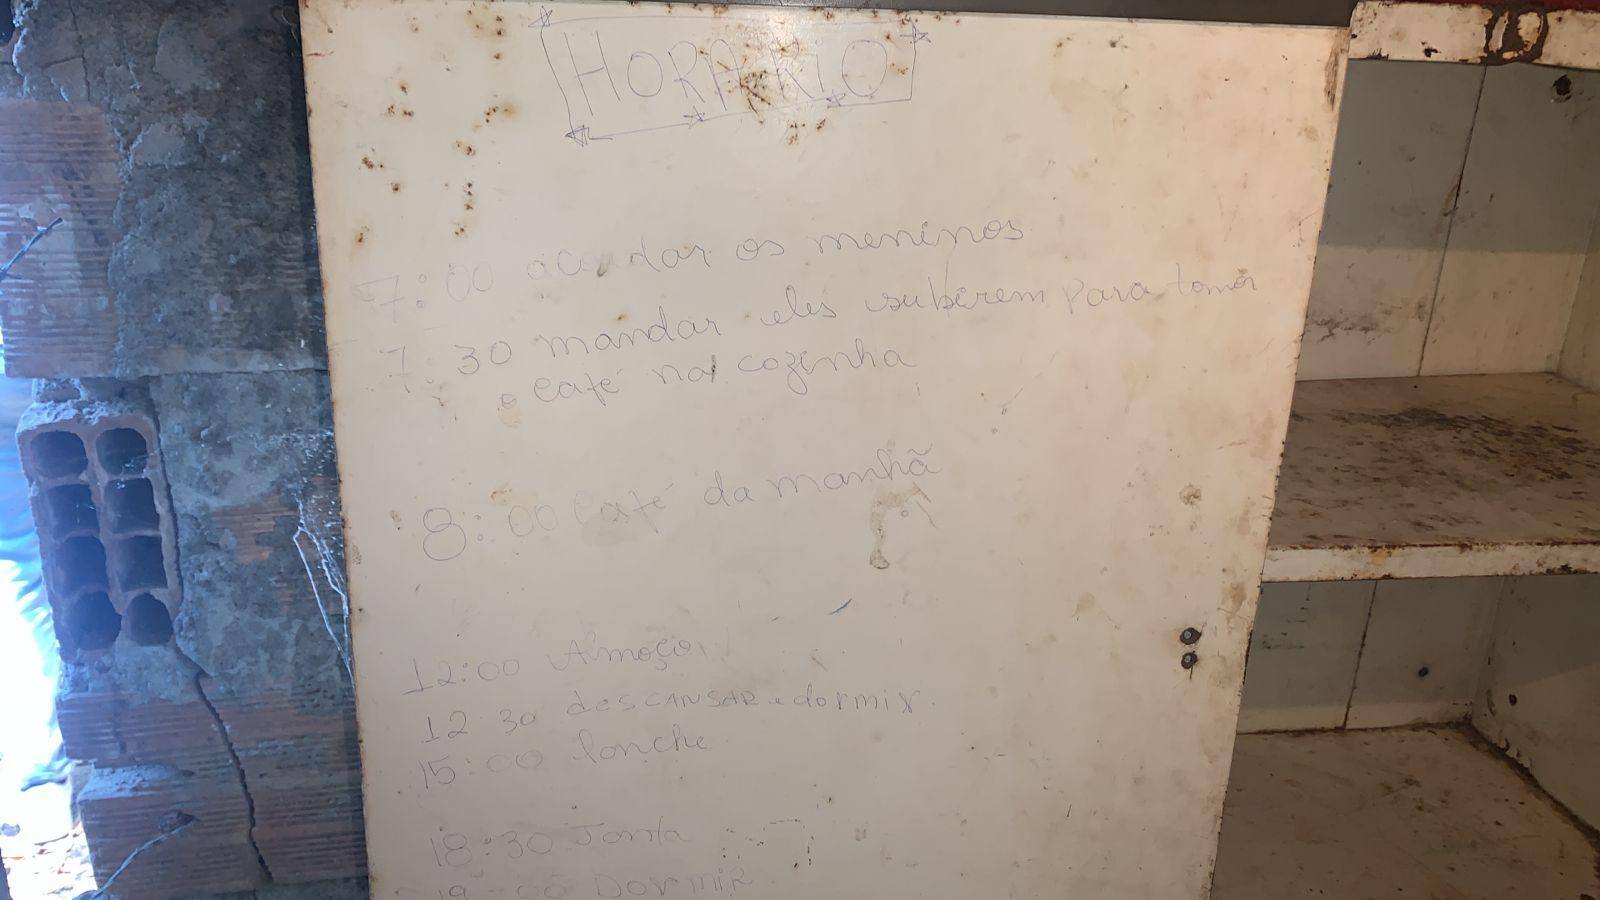 HORARIO
7:00 acordar os meninos
7:30 mandar eles subirem para tomar
o café na cozinha
8:00 Café da manhã
12:00 Almoço
12 30 desCANSAR e dormir
15:00 lanche
18:30 Janta
19:00 DORMIR